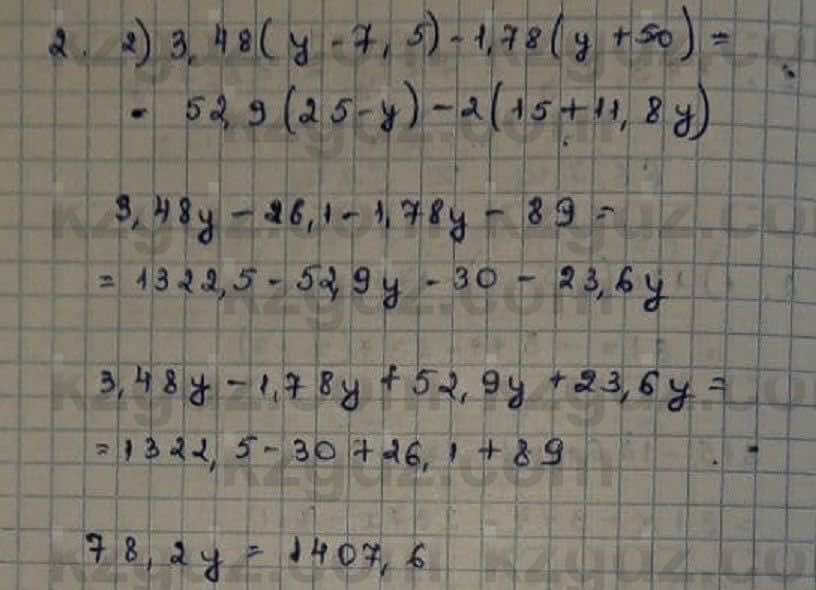 2. 2) 3,48(y-7,5)-1,78(y+50)=
= 52,9(25-y)-2(15+11,8y)
3,48y-26,1-1,78y-89=
=1322,5-52,9y-30-23,6y
3,48y-1,78y+52,9y+23,6y=
=1322,5-30+26,1+89
78,2y=1407,6